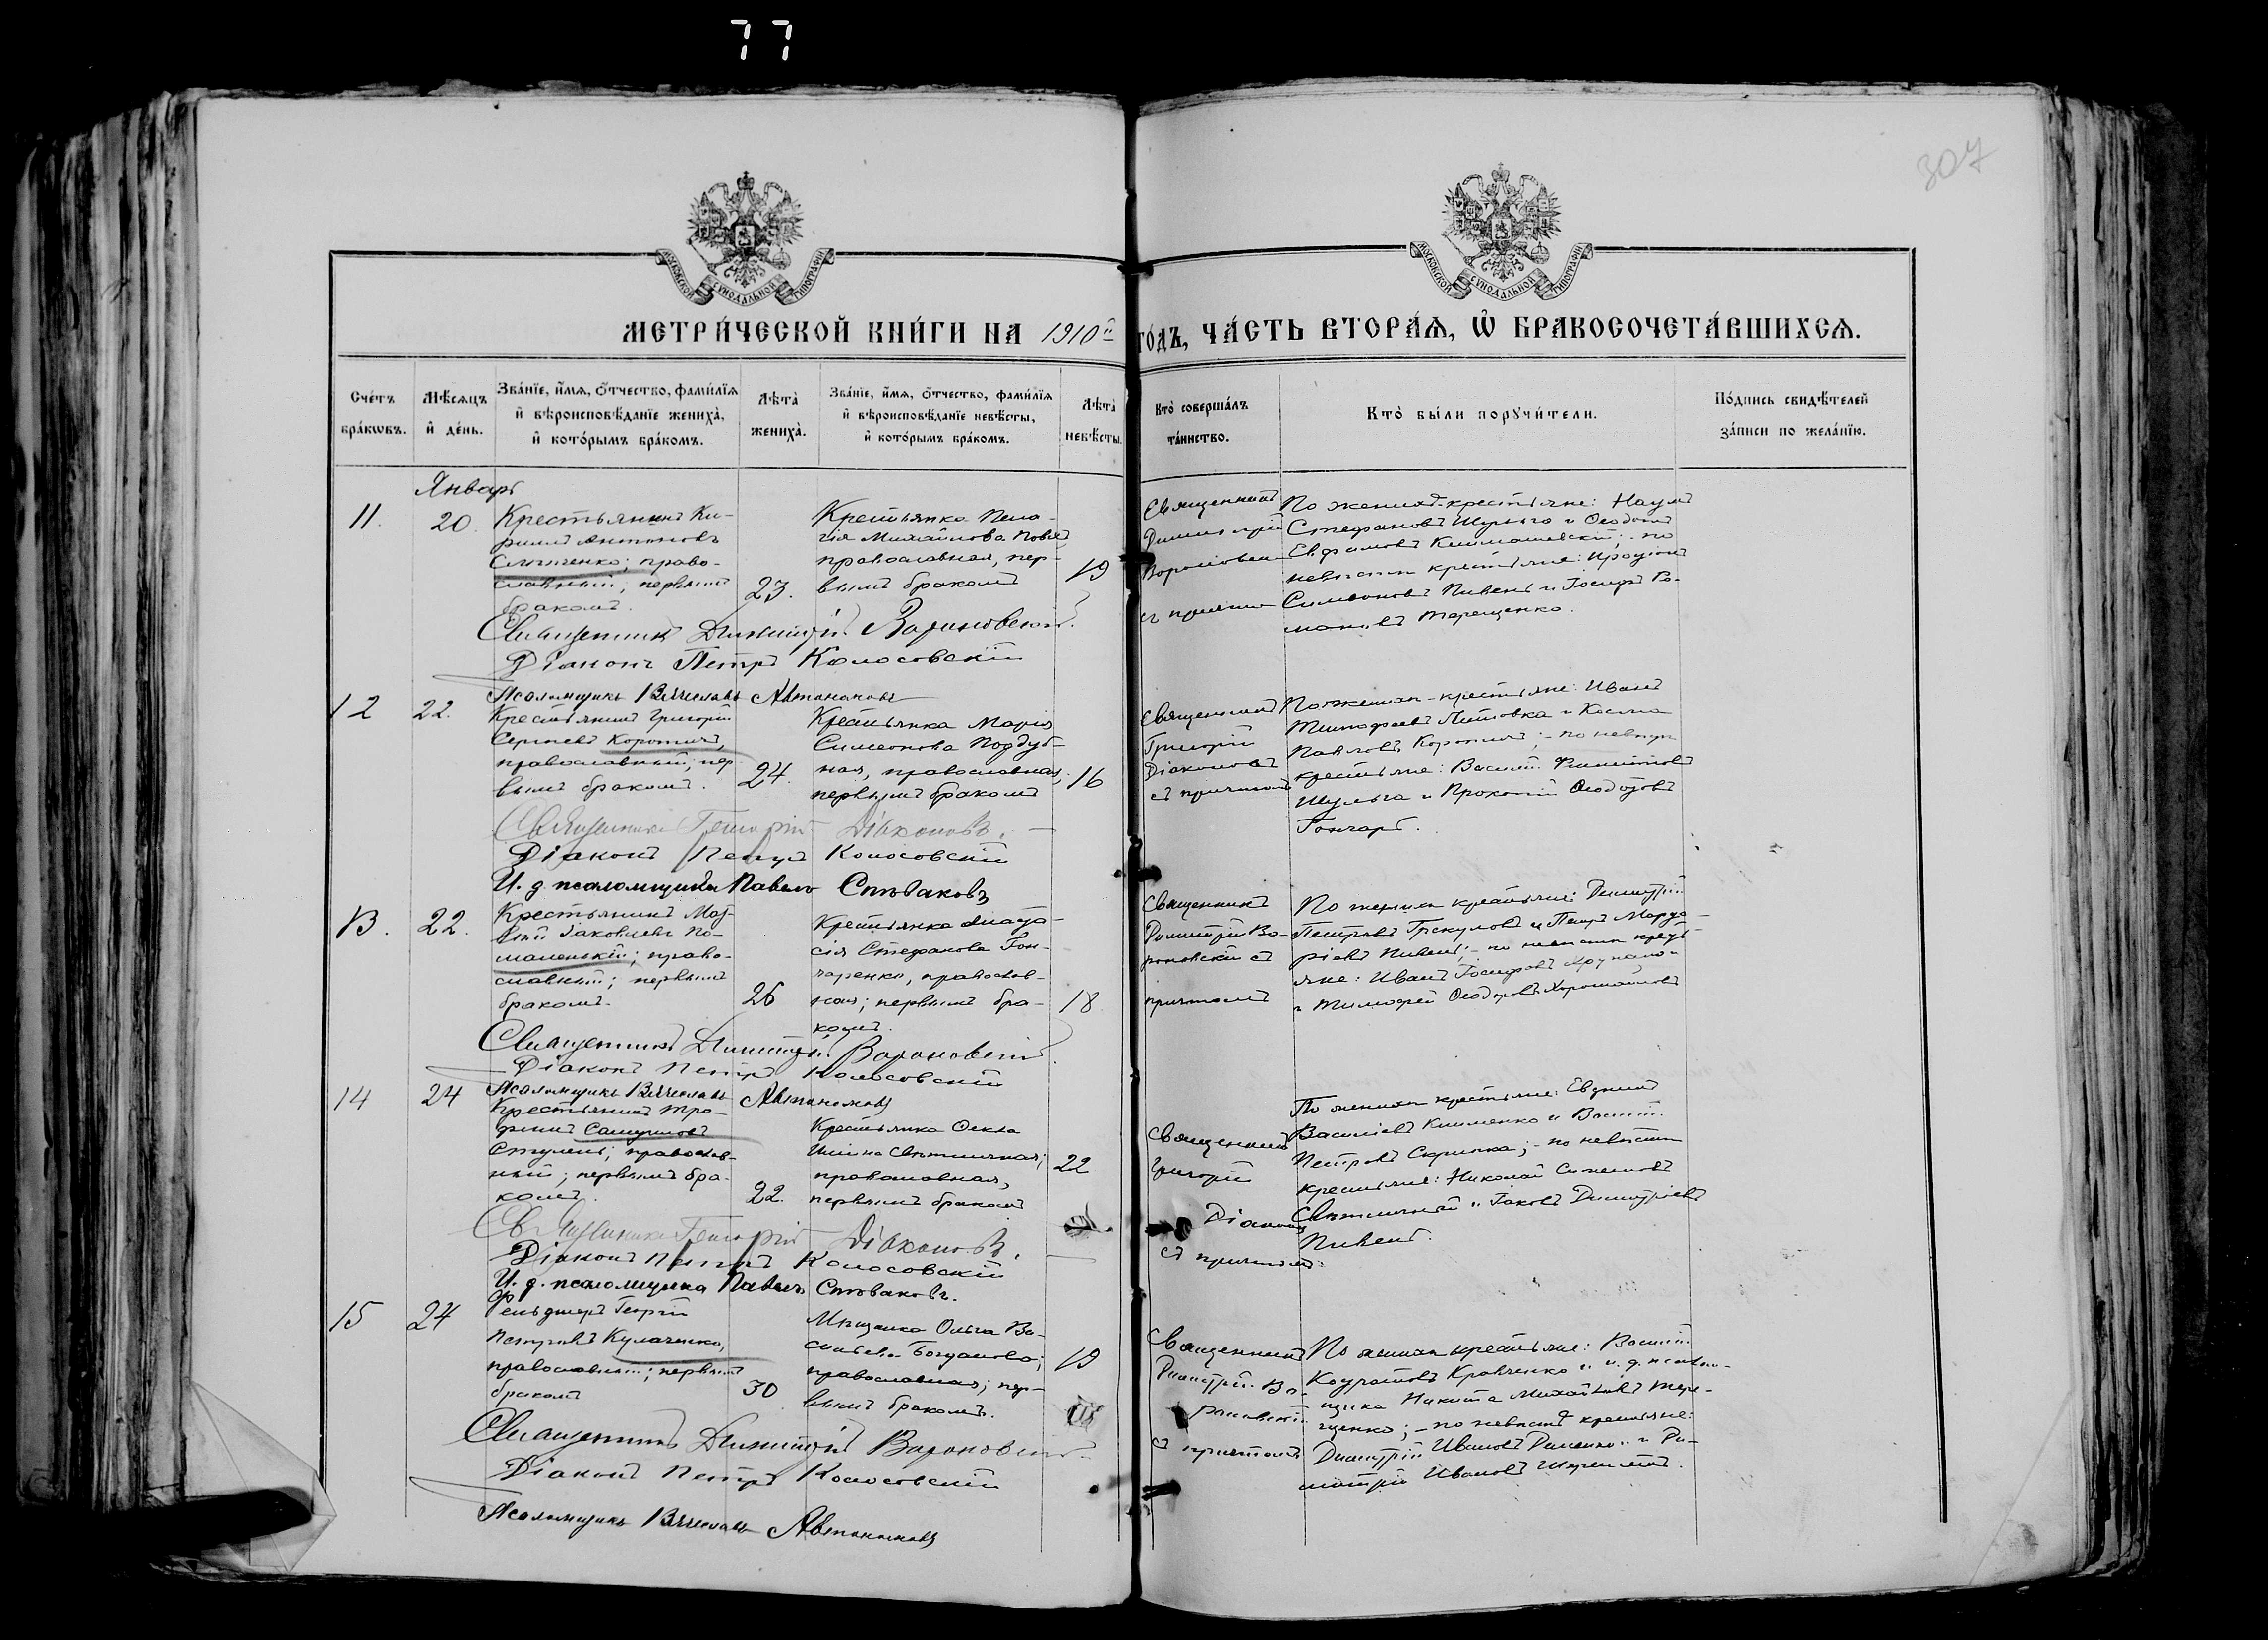 77
307
МОСКОВСКОЙ СѴНОДАЛЬНОЙ ТИПОГРАФІИ
МОСКОВСКОЙ СѴНОДАЛЬНОЙ ТИПОГРАФІИ
МЕТРИ́ЧЕСКОЙ КНИ́ГИ НА 1910й ГО́ДЪ, ЧА́СТЬ ВТОРА́Ѧ, Ѡ҆ БРАКОСОЧЕТА́ВШИХСѦ.
Сче́тъ
бра́кѡвъ.
Мѣ́сѧцъ
и҆ де́нь.
Зва́нїе, и҆́мѧ, о҆́тчество, фами́лїѧ
и҆ вѣроисповѣ́данїе жениха̀,
и҆ кото́рымъ бра́комъ.
Лѣта̀
жениха̀.
Зва́нїе, и҆́мѧ, о҆́тчество, фами́лїѧ
и҆ вѣроисповѣ́данїе невѣ́сты,
и҆ кото́рымъ бра́комъ.
Лѣта̀
невѣ́сты.
Кто̀ соверша́лъ
та́инство.
Кто̀ бы́ли порꙋчи́тели.
По́дпись свидѣ́телей
за́писи по жела́нїю.
Январь
11.
20.
Крестьянинъ Ки-
риллъ Антоновъ
право-
славный; первымъ
бракомъ.
23.
Крестьянка Пела-
гія Михайлова
православная, пер-
вымъ бракомъ
19
Священникъ
Димитрій
Вороновскій
съ причтомъ
По женихѣ-крестьяне: Наумъ
Стефановъ Шульга и Ѳеодотъ
Евфимовъ по
невѣстѣ крестьяне: Иродіонъ
Симеоновъ Пивень и Іосифъ Ро-
мановъ Терещенко.
Священникъ Димитрій Вороновскій.
Діаконъ Петръ Колосовскій
Псаломщикъ Вячеславъ Автономовъ
12
22.
Крестьянинъ Григорій
Сергѣевъ Коротичъ,
православный, пер-
вымъ бракомъ.
24.
Крестьянка Марія
Симеонова Поддуб-
ная, православная;
первымъ бракомъ
16
Священникъ
Григорій
Діаконовъ
съ причтомъ
По женихѣ-крестьяне: Иванъ
Тимофеевъ Литовка и Косма
Павловъ Коротичъ; - по невѣстѣ
крестьяне: Василій Филипповъ
Шульга и Прокопій Ѳеодотовъ
Гончаръ.
Священникъ Григорій Діаконовъ.
Діаконъ Петръ Колосовскій
И. д. псаломщика Павелъ Спѣваковъ
13.
22.
Крестьянинъ Мат-
вѣй Іаковлевъ По-
маленькій; право-
славный; первымъ
бракомъ.
26
Крестьянка Анаста-
сія Стефанова Гон-
чаренко, православ-
ная; первымъ бра-
комъ.
18
Священникъ
Димитрій Во-
роновскій съ
причтомъ
По женихѣ крестьяне: Димитрій
Петровъ и Петръ Марда-
ріевъ Пивень; - по невѣстѣ кресть-
яне: Иванъ Іосифовъ
и Тимофей Ѳеодоровъ
Священникъ Димитрій Вороновскій.
Діаконъ Петръ Колосовскій
Псаломщикъ Вячеславъ Автономовъ
14
24
Крестьянинъ Тро-
фимъ Самуиловъ
православ-
ный; первымъ бра-
комъ.
22.
Крестьянка Ѳекла
Ильина Свѣтличная;
православная,
первымъ бракомъ
22
Священникъ
Григорій
Діаконовъ
съ причтомъ
По женихѣ крестьяне: Евфимій
Василіевъ Клименко и Василій
Петровъ Скрипка; - по невѣстѣ
крестьяне: Николай Симеоновъ
Свѣтличный и Іаковъ Димитріевъ
Пивень.
Священникъ Григорій Діаконовъ.
Діаконъ Петръ Колосовскій
И. д. псаломщика Павелъ Спѣваковъ.
15
24
Фельдшеръ Георгій
Петровъ Кулаченко,
православный; первымъ
бракомъ
30
Мѣщанка Ольга Ва-
сильева Богданова;
православная; пер-
вымъ бракомъ.
19
Священникъ
Димитрій Во-
роновскій
съ причтомъ
По женихѣ крестьяне: Василій
Кондратовъ Кравченко и и. д. псалом-
щика Никита Михайловъ Тере-
щенко; - по невѣстѣ крестьяне:
Димитрій Ивановъ и Ди-
митрій Ивановъ
Священникъ Димитрій Вороновскій
Діаконъ Петръ Колосовскій
Псаломщикъ Вячеславъ Автономовъ